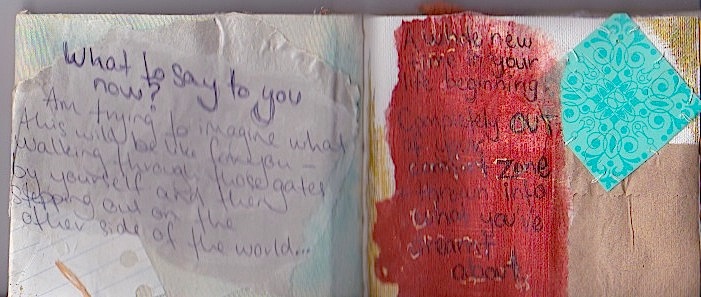 What to say to you
now?
Am trying to imagine what
this will be like for you –
Walking through those gates
by yourself and then
Stepping out on the
other side of the world...
A whole new
time in your
life beginning.
Completely OUT
of your
comfort zone
thrown into
what you've
dreamt
about.